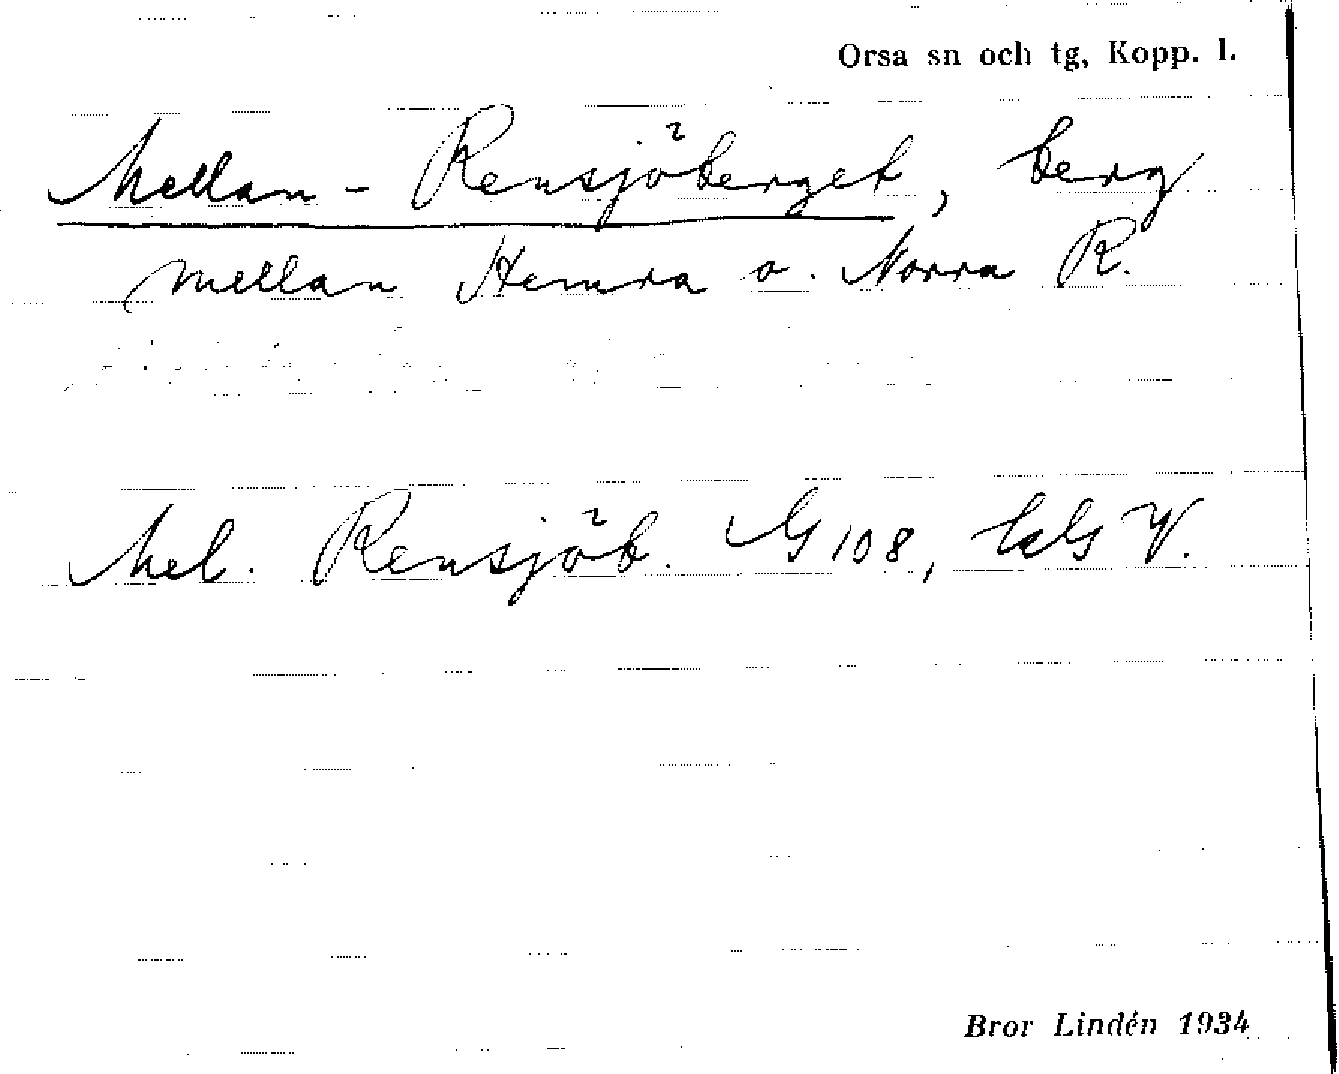 Orsa sn och tg, Kopp. l.
Mellan-Rensjöberget, berg
mellan Hemra o. Norra R.
Mel. Rensjöb. G 108,
Bror Lindén 1934